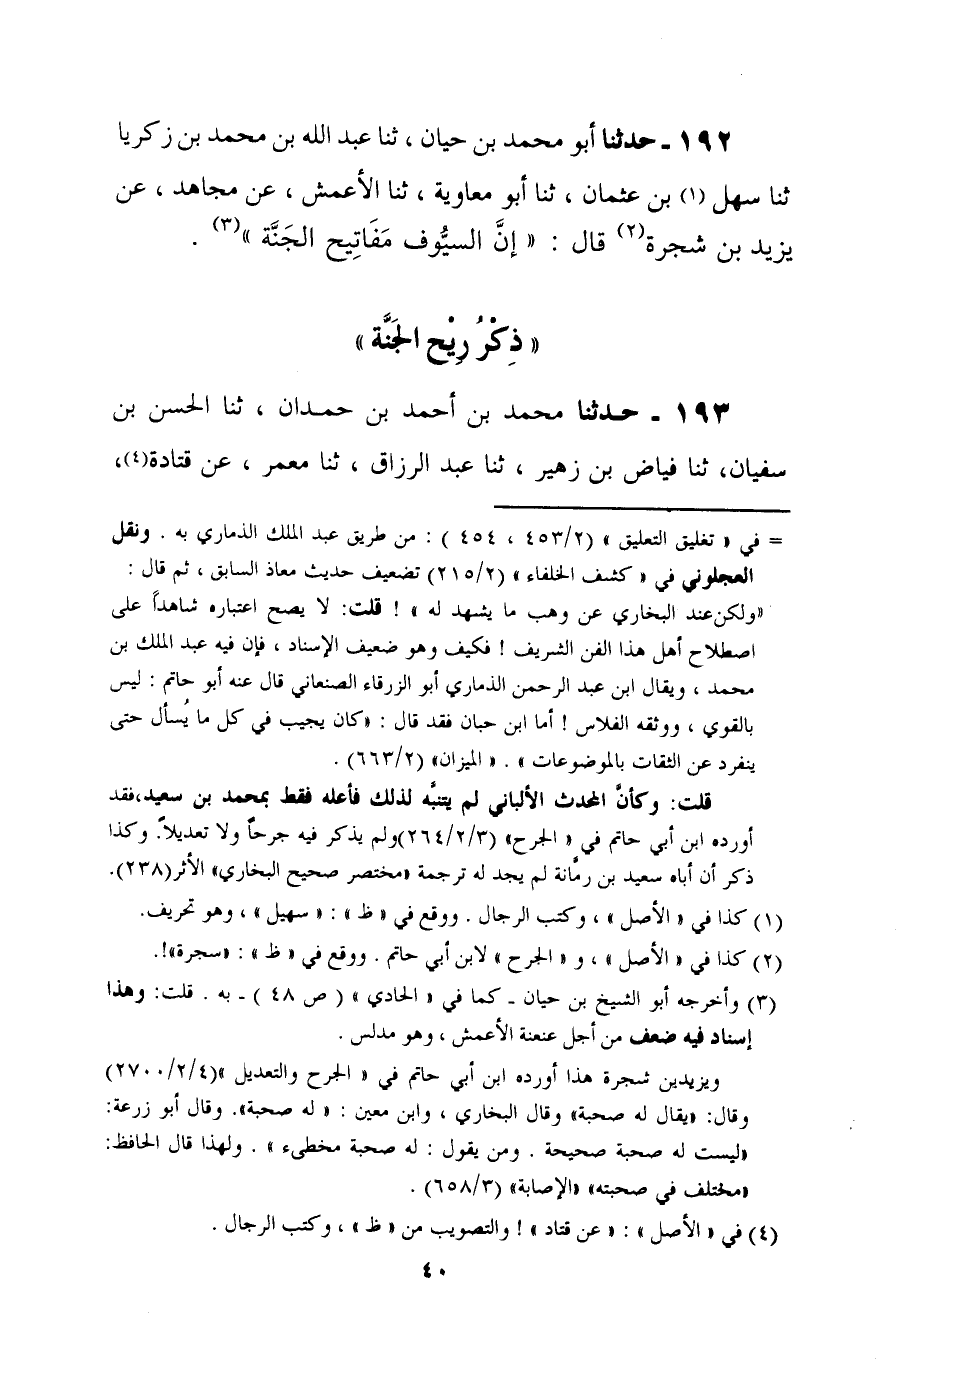 ١٩٢ ـ حدثنا أبو محمد بن حيان ، ثنا عبد الله بن محمد بن زكريا
ثنا سهل (١) بن عثمان ، ثنا أبو معاوية ، ثنا الأعمش ، عن مجاهد ، عن
يزيد بن شجرة(٢) قال : « إنَّ السيُّوف مَفَاتِيح الجَنَّة »(٣) .
« ذِكْرُ رِيْحِ الجَنَّة »
١٩٣ ـ حدثنا محمد بن أحمد بن حمدان ، ثنا الحسن بن
سفيان، ثنا فياض بن زهير ، ثنا عبد الرزاق ، ثنا معمر ، عن قتادة(٤)،
= في « تغليق التعليق » (٤٥٣/٢ ، ٤٥٤ ) : من طريق عبد الملك الذماري به . ونقل
العجلوني في « كشف الخلفاء » (٢١٥/٢) تضعيف حديث معاذ السابق ، ثم قال :
«ولكن عند البخاري عن وهب ما يشهد له » ! قلت: لا يصح اعتباره شاهداً على
اصطلاح أهل هذا الفن الشريف ! فكيف وهو ضعيف الإسناد ، فإن فيه عبد الملك بن
محمد ، ويقال ابن عبد الرحمن الذماري أبو الزرقاء الصنعاني قال عنه أبو حاتم : ليس
بالقوي ، ووثقه الفلاس ! أما ابن حبان فقد قال : «كان يجيب في كل ما يُسأل حتى
ينفرد عن الثقات بالموضوعات » . « الميزان» (٦٦٣/٢) .
قلت: وكأنَّ المحدث الألباني لم يتنبَّه لذلك فأعله فقط بمحمد بن سعيد،فقد
أورده ابن أبي حاتم في « الجرح» (٢٦٤/٢/٣)ولم يذكر فيه جرحاً ولا تعديلاً. وكذا
ذكر أن أباه سعيد بن رمَّانة لم يجد له ترجمة «مختصر صحيح البخاري» الأثر(٢٣٨).
(١) كذا في « الأصل » ، وكتب الرجال . ووقع في « ظ » : « سهيل » ، وهو تحريف.
(٢) كذا في « الأصل » ، و « الجرح » لابن أبي حاتم . ووقع في « ظ » : «سجرة»!.
(٣) وأخرجه أبو الشيخ بن حيان ـ كما في « الحادي » ( ص ٤٨ ) ـ به . قلت: وهذا
إسناد فيه ضعف من أجل عنعنة الأعمش ، وهو مدلس .
ويزيدبن شجرة هذا أورده ابن أبي حاتم في « الجرح والتعديل »(٢٧٠٠/٢/٤)
وقال: «يقال له صحبة» وقال البخاري ، وابن معين : « له صحبة». وقال أبو زرعة:
«ليست له صحبة صحيحة . ومن يقول : له صحبة مخطىء » . ولهذا قال الحافظ:
«مختلف في صحبته» «الإصابة» (٦٥٨/٣) .
(٤) في « الأصل » : « عن قتاد » ! والتصويب من « ظ » ، وكتب الرجال .
٤٠